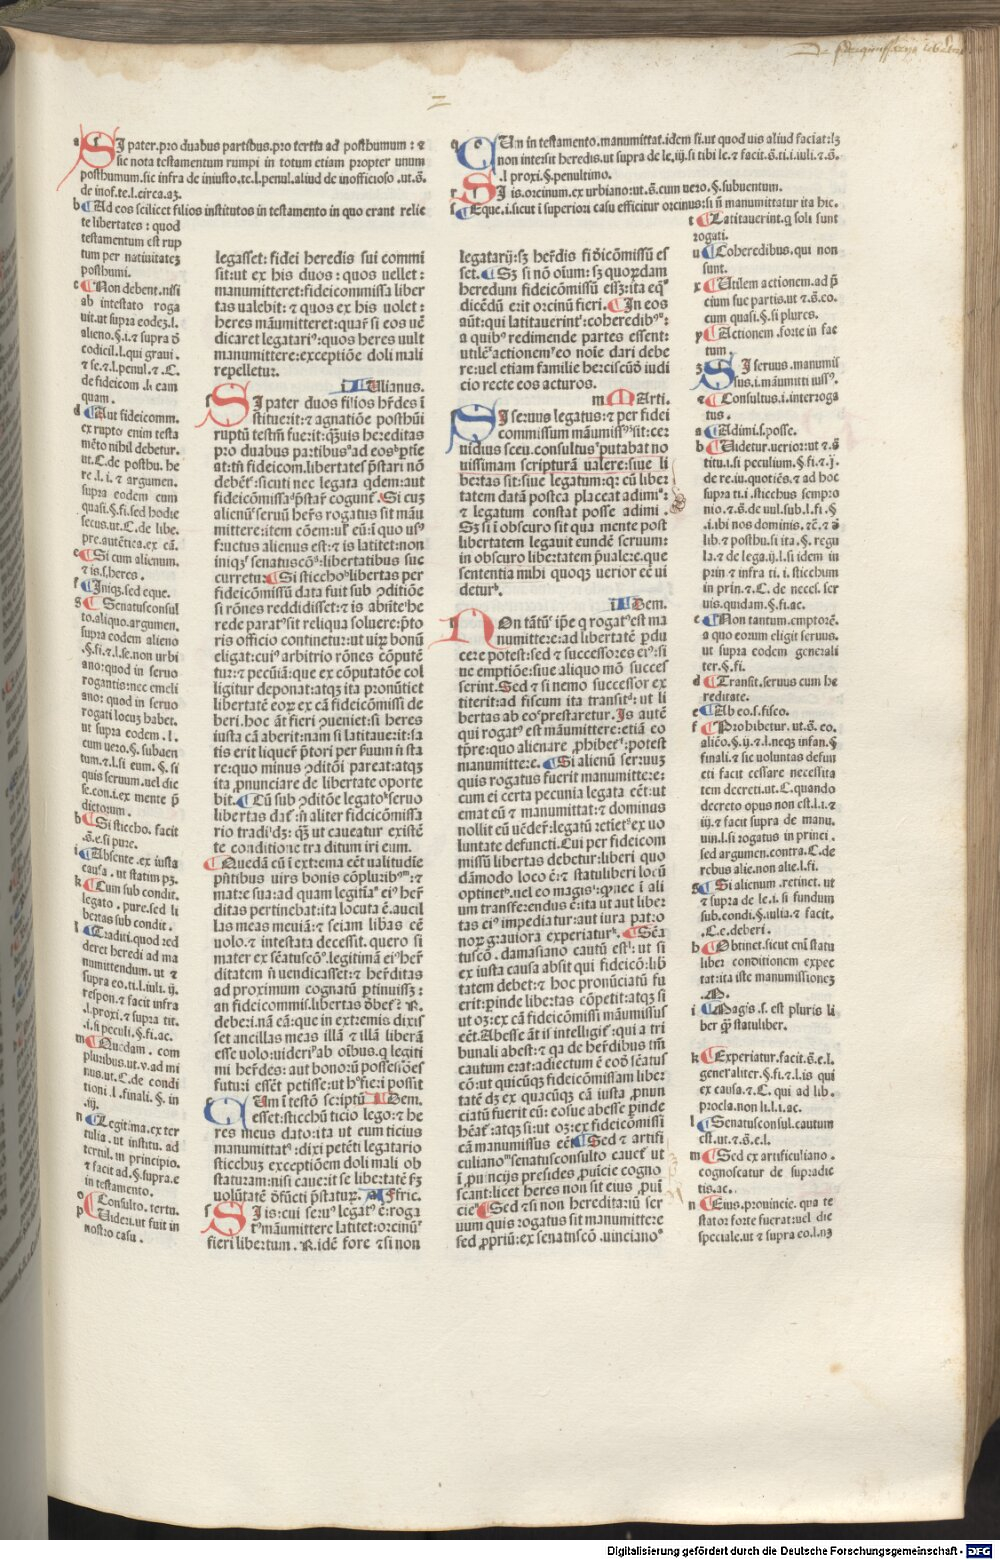 SI pater.pro duabus partibus.pro tertia ad posthumum: ⁊
sic nota testamentum rumpi in totum etiam propter unum
posthumum.sic infra de iniusto.te.l.penul.aliud de inofficioso.ut.s̄.
de inof.te.l.circa.aʒ.
b Ad eos scilicet filios institutos in testamento in quo erant relic
te libertates: quod
testamentum est rup
tum per natiuitateʒ
posthumi.
c Non debent.nisi
ab intestato roga
uit.ut supra eodeʒ.l.
alieno.§.i.⁊ supra d̄
codicil.l.qui graui.
⁊ se.⁊.l.penul.⁊.C.
de fideicom.li.eam
quam.
d Aut fideicomm.
ex rupto enim testa
mēto nihil debetur.
ut.C.de posthu.he
re.l.i.⁊ argumen.
supra eodem cum
quasi.§.fi.sed hodie
secus.ut.C.de libe.
pre.autētica.ex cā.
e Si cum alienum.
⁊ is.s.heres.
f Iniqʒ.sed eque.
g Senatusconsul
to.aliquo.argumen.
supra eodem alieno
.§.fi.⁊.l.se.non urbi
ano:quod in seruo
rogantis:nec emeli
ano: quod in seruo
rogati locuʒ habet.
ut supra eodem.l.
cum uero.§.subuen
tum.⁊.l.si eum.§.si
quis seruum.uel die
se.con.i.ex mente p̄
dictorum.
h Si sticcho. facit
.s̄.e.si pure.
i Absente.ex iusta
causa.ut statim pʒ.
k Cum sub condit.
legato.pure.sed li
bertas sub condit.
l Traditi.quod red
deret heredi ad ma
numittendum.ut ⁊
supra eo.ti.l.iuli.ij.
respon.⁊ facit infra
.l.proxi.⁊ supra tit.
.i.si peculi.§.fi.ac.
m Quedam. com
pluribus.ut.v.ad mi
nus.ut.C.de condi
tioni.l.finali.§.in
.iij.
n Legitima.ex ter
tulia.ut institu. ad
tertul.in principio.
⁊ facit ad.§.supra.e
in testamento.
o Consulto.tertu.
p Uideri.ut fuit in
nostro casu.
legasset: fidei heredis sui commi
sit:ut ex his duos:quos uellet:
manumitteret:fideicommissa liber
tas ualebit:⁊ quos ex his uolet:
heres māumitteret:quar̄ si eos uē
dicaret legatariꝰ:quos heres uult
manumittere:exceptiōe doli mali
repelletur.
i IUlianus.
SI pater duos filios hr̄des ī
stituerit:⁊ agnatiōe posthūi
ruptū testm̄ fuerit:q̄uis hereditas
pro duabus partibusᵃ ad eosᵇ ptīe
at:tn̄ fideicom.libertates p̄stari nō
debētᶜ:sicuti nec legata qdem:aut
fideicōmissaᵈ p̄star̄ coguntᶜ.Si cuʒ
alienūᶜ seruū her̄s rogatus sit māu
mittere:item cōem:ul̓ eū:ī quo usꝰ
fructus alienus est:⁊ is latitet:non
iniqʒᶠ senatuscōsᵍ:libertatibus suc
curretur.Si sticchoʰ libertas per
fideicōmissū data fuit sub ꝯditiōe
si rōnes reddidisset:⁊ is abn̄teⁱ he
rede paratꝰ sit reliqua soluere:p̄to
ris officio continetur:ut uiꝝ bonū
eligat:cuiꝰ arbitrio rōnes cōputē
tur:⁊ pecūia:que ex cōputatōe col
ligitur deponat:atqʒ ita pronūtiet
libertatē eoꝝ ex cā fideicōmissi de
beri.hoc āt fieri ꝯueniet:si heres
iusta cā aberit:nam si latitauerit:sa
tis erit liquer̄ p̄tori per ħuum n̄ sta
re:quo minus ꝯditōi pareat:atqʒ
ita ꝓnunciare de libertate oporte
bit.Cū sub ꝯditōe legatoᵏ seruo
libertas datᶜ:n̄ aliter fideicōmissa
rio tradiˡ dʒ: q̄ ut caueatur existē
te conditione traditum iri eum.
Quedā cū ī extrema eēt ualitudīe
pn̄tibus uirs bonis cōpluribꝰᵐ:⁊
matre sua:ad quam legitīaⁿ eiꝰ her̄
ditas pertinebat:ita locuta ē.aucil
las meas meuiā:⁊ sciam libas eē
uolo.⁊ intestata decessit.quero si
mater ex sēatuscōᵒ.legitimā eiꝰ her̄
ditatem n̄ uendicasset:⁊ her̄ditas
ad proximum cognatū ptinuisʒ:
an fideicommis.libertas dēbet̄? R.
deberi.nā eā:que in extremis dixis
set ancillas meas illā ⁊ illā liberā
esse uolo:uideriᵖ ab oībus.q legiti
mi her̄des:aut bonorū possessiōes
futuri essēt petisse:ut hꝰ fieri possit
CUm ī testō scriptū Idem.
esset:sticchū ticio lego:⁊ he
res meus dato:ita ut eum ticius
manumittat:dixi petēti legatario
sticchuʒ exceptiōem doli mali ob
staturam:nisi cauerit se libertatē fʒ
uolūtatē dēfucti p̄statuꝝ. Affric.
SI is:cui seruꝰ legatꝰ ē:roga
tꝰ māumittere latitet:orcinusᶠ
fieri libertum. R.idē fore ⁊ si non
q CUm in testamento.manumittat.idem si.ut quod uis aliud faciat:lʒ
non intersit heredis.ut supra de le.iij.si tibi le.⁊ facit.s̄.ti.i.iuli.⁊.s̄.
.l proxi.§.penultimo.
r SI is.orcinum.ex urbiano:ut.s̄.cum uero.§.subuentum.
s Eque.i.sicut ī superiori casu efficitur orcinus:si n̄ manumittatur ita hic.
legatarij:sʒ her̄dis fīdicōmissū es
set.Sʒ si nō oīum:sʒ quoꝝdam
heredum fideicōmissū essʒ:ita eqᵘ
dicēdū erit orcinū fieri.In eos
aūt:qui latitauerintᵗ:coheredibꝰᵘ:
a quibꝰ redimende partes essent:
utilēˣ actionemʸ eo noīe dari debe
re:uel etiam familie herciscūd iudi
cio recte eos acturos.
m MArti.
SI seruus legatus:⁊ per fidei
commissum māumissꝰ sit:cer
uidius sceu.consultusᶻ putabat no
uissimam scripturā ualere:siue li
bertas sit:siue legatum:qꝛ cū liber
tatem datā postea placeat adimiᵃ:
⁊ legatum constat posse adimi.
Sʒ si ī obscuro sit qua mente post
libertatem legauit eundē seruum:
in obscuro libertatem p̄ualere.que
sententia mihi quoqʒ uerior eē ui
deturᵇ.
i IDem.
NOn tātūᶜ ip̄e q rogatꝰ est ma
numittere:ad libertatē pdu
cere potest:sed ⁊ successores eiꝰ:si
ue emptiōe:siue aliquo mō succes
serint.Sed ⁊ si nemo successor ex
titerit:ad fiscum ita transitᵈ: ut li
bertas ab eoᵉ prestaretur.Is autē
qui rogatꝰ est māumittere:etiā eo
tp̄re:quo alienare ꝓhibetᶠ:potest
manumittere.Si alienū seruuʒ
quis rogatus fuerit manumittere:
cum ei certa pecunia legata eēt:ut
emat eū ⁊ manumittat:⁊ dominus
nollit eū uēder̄:legatū retietᵍ ex uo
luntate defuncti.Cui per fideicom
missū libertas debetur:liberi quo
dāmodo loco ē:⁊ statuliberi locū
optinetʰ.uel eo magisⁱ:ꝙ nec ī ali
um transferendus ē:ita ut aut liber
tas eiꝰ impediatur:aut iura patro
noꝝ grauiora experiaturᵏ. Sēa
tuscō.damasiano cautū estˡ:ut si
ex iusta causa absit qui fideicō:lib̄
tatem debet:⁊ hoc pronūciatū fu
erit:p̄inde libertas cōpetit:atqʒ si
ut oʒ:ex cā fideicōmissi māumissus
eēt.Abesse āt is intelligit̄:qui a tri
bunali abest:⁊ qa de her̄dibus tm̄
cautum erat:adiectum ē eod sēatus
cō:ut quicūqʒ fideicōmissam liber
tatē dʒ ex quacūqʒ cā iusta ꝓnun
ciatū fuerit eū:eosue abesse p̄inde
hēat̄:atqʒ si:ut oʒ:ex fideicōmissi
cā manumissus eēt.Sed ⁊ artifi
culianoᵐ senatusconsulto cauet̄ ut
ī ꝓuincijs presides ꝓuīcie cogno
scant:licet heres non sit eius ꝓui
cieⁿ.Sed ⁊ si non hereditariū ser
uum quis rogatus sit manumittere
sed ꝓpriū:ex senatuscō.uincianoᵒ
t Latitauerint.q soli sunt
rogati.
u Coheredibus.qui non
sunt.
x Utilem actionem.ad p̄
cium sue partis.ut ⁊.s̄.eo.
cum quasi.§.si plures.
y Actionem.forte in fac
tum.
z SI seruus.manumis
sus.i.māumitti iussꝰ.
⁊ Consultus.i.interroga
tus.
a Adimi.s.posse.
b Uidetur.uerior:ut ⁊ s̄
titu.i.si peculium.§.fi.⁊.j.
de re.iu.quotiēs.⁊ ad hoc
supra ti.i.sticchus sempro
nio.⁊.s̄.de uul.sub.l.fi.§
.i.ibi nos dominis.⁊c.⁊ d̄
lib.⁊ posthu.si ita.§.regu
la.⁊ de lega.ij.l.si idem in
prin ⁊ infra ti.i.sticchum
in prin.⁊.C.de necef.ser
uis.quidam.§.fi.ac.
c Non tantum.emptorē.
a quo eorum eligit seruus.
ut supra eodem generali
ter.§.fi.
d Transit.seruus cum he
reditate.
e Ab eo.s.fisco.
f Prohibetur.ut.s̄.eo.
alieō.§.ij.⁊.l.neqʒ infan.§
finali.⁊ sic uoluntas defun
cti facit cessare necessita
tem decreti.ut.C.quando
decreto opus non est.l.i.⁊
iij.⁊ facit supra de manu.
uin.l.si rogatus in princi.
sed argumen.contra.C.de
rebus alie.non alie.l.fi.
g Si alienum.retinet.ut
⁊ supra de le.i.si fundum
sub.condi.§.iulia.⁊ facit.
.C.e.deberi.
h Obtinet.sicut enī statu
liber conditionem expec
tat:ita iste manumissioneʒ
i Magis.s.est pluris li
ber ꝙ statuliber.
k Experiatur.facit.s̄.e.l.
generaliter.§.fi.⁊.l.is qui
ex causa.⁊.C.qui ad lib.
procla.non li.l.i.ac.
l Senatusconsul.cautum
est.ut.⁊.s̄.e.l.
m Sed ex articuliano.
cognoscatur de supradic
tis.ac.
n Eius.prouincie.qua te
stator forte fuerat:uel die
speciale.ut ⁊ supra eo.l.nʒ
Digitalisierung gefördert durch die Deutsche Forschungsgemeinschaft - DFG